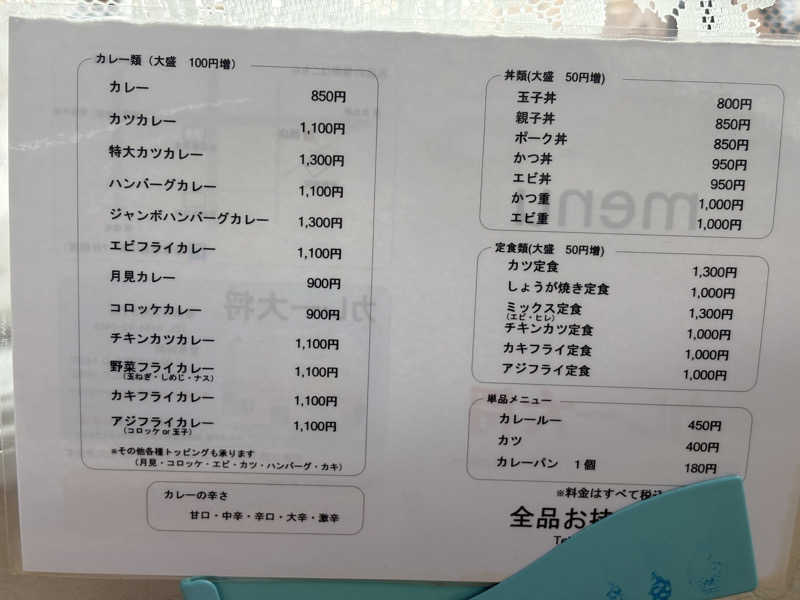 カレー類（大盛　100円増）
カレー　850円
カツカレー　1,100円
特大カツカレー　1,300円
ハンバーグカレー　1,100円
ジャンボハンバーグカレー　1,300円
エビフライカレー　1,100円
月見カレー　900円
コロッケカレー　900円
チキンカツカレー　1,100円
野菜フライカレー　1,100円
（玉ねぎ・しめじ・ナス）
カキフライカレー　1,100円
アジフライカレー　1,100円
（コロッケ or 玉子）
※その他各種トッピングも承ります
（月見・コロッケ・エビ・カツ・ハンバーグ・カキ）
カレーの辛さ
甘口・中辛・辛口・大辛・激辛
丼類(大盛　50円増)
玉子丼　800円
親子丼　850円
ポーク丼　850円
かつ丼　950円
エビ丼　950円
かつ重　1,000円
エビ重　1,000円
定食類(大盛　50円増)
カツ定食　1,300円
しょうが焼き定食　1,000円
ミックス定食　1,300円
（エビ・ヒレ）
チキンカツ定食　1,000円
カキフライ定食　1,000円
アジフライ定食　1,000円
単品メニュー
カレールー　450円
カツ　400円
カレーパン　1個　180円
※料金はすべて税込
全品お持
Te
menu
カレー大将